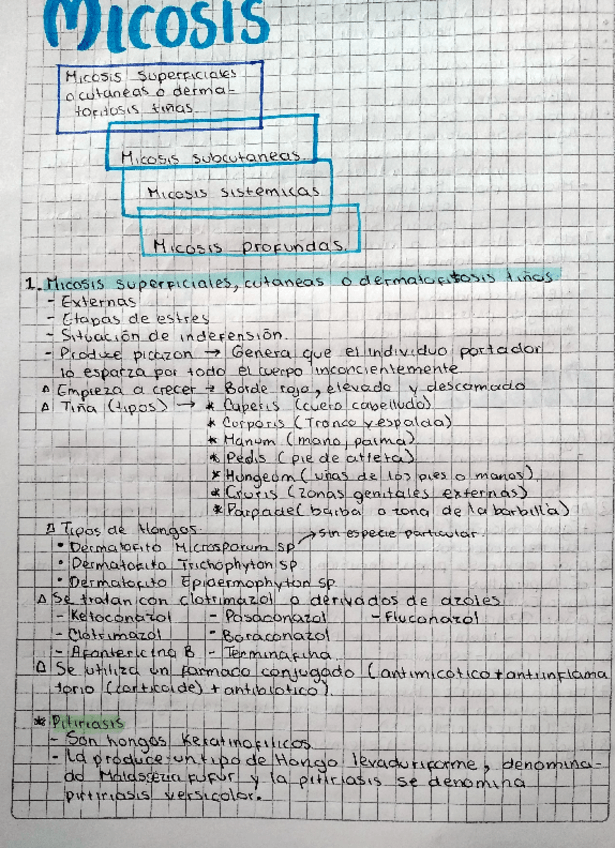 MICOSIS
Micosis superficiales
o cutaneas o derma-
tofitosis tiñas.
Micosis subcutaneas.
Micosis sistemicas
Micosis profundas.
1. Micosis superficiales, cutaneas o dermatofitosis tiñas
- Externas
- Etapas de estres
- Situación de indefensión.
- Produce picazon → Genera que el individuo portador
lo esparza por todo el cuerpo inconcientemente
Δ Empieza a crecer → Borde rojo, elevado y descamado
Δ Tiña (tipos) → * Caperis (cuero cabelludo)
* Corporis (Tronco y espalda)
* Manum (mano, palma)
* Pedis (pie de atleta)
* Hungeom (uñas de los pies o manos)
* Cruris (zonas genitales externas)
* Parpade (barba o zona de la barbilla)
Δ Tipos de Hongos.
→ sin especie particular.
• Dermatofito Microsporum sp
• Dermatofito Trichophyton sp
• Dermatofito Epidermophyton sp.
Δ Se tratan con clotrimazol o derivados de azoles
- Ketoconazol - Posaconazol - Fluconazol
- Clotrimazol - Boraconazol
- Afontericina B - Terminafina
Δ Se utiliza un farmaco conjugado (antimicotico + antiinflama
torio (corticoide) + antibiotico).
* Pitiriasis
- Son hongos Keratinofilicos
- La produce un tipo de Hongo levaduriforme, denomina-
do Malassezia fufur y la pitiriasis se denomina
pittiriasis versicolor.